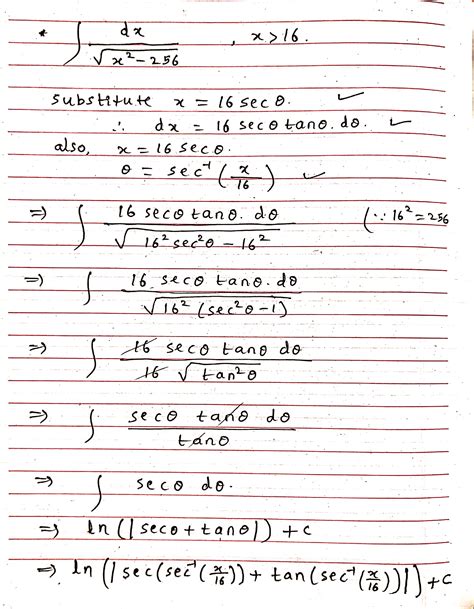 * ∫ dx / √(x² − 256) , x > 16.
substitute x = 16 sec θ. ✓
∴ dx = 16 sec θ tan θ. dθ. ✓
also, x = 16 sec θ.
θ = sec⁻¹ (x/16) ✓
⇒ ∫ 16 sec θ tan θ. dθ / √(16² sec² θ − 16²) (∵ 16² = 256
⇒ ∫ 16. sec θ tan θ. dθ / √(16² (sec² θ − 1))
⇒ ∫ 16 sec θ tan θ dθ / 16 √(tan² θ)
⇒ ∫ sec θ tan θ dθ / tan θ
⇒ ∫ sec θ dθ.
⇒ ln (|sec θ + tan θ|) + c
⇒ ln (|sec (sec⁻¹ (x/16)) + tan (sec⁻¹ (x/16))|) + c